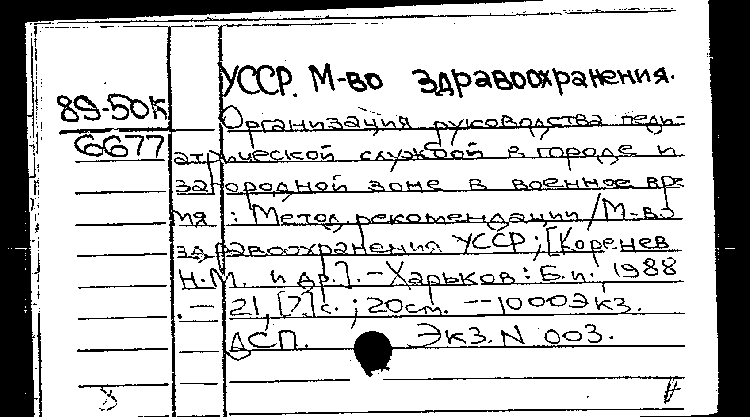 УССР. М-во здравоохранения.
89-50к
6677
Организация руководства педи-
атрической службой в городе и
загородной зоне в военное вре
мя : Метод. рекомендации / М-во
здравоохранения УССР ; [Коренев
Н.М. и др.]. - Харьков : Б.и., 1988
. - 21, [7]с. ; 20см. -- 1000экз.
ДСП. Экз. N 003.